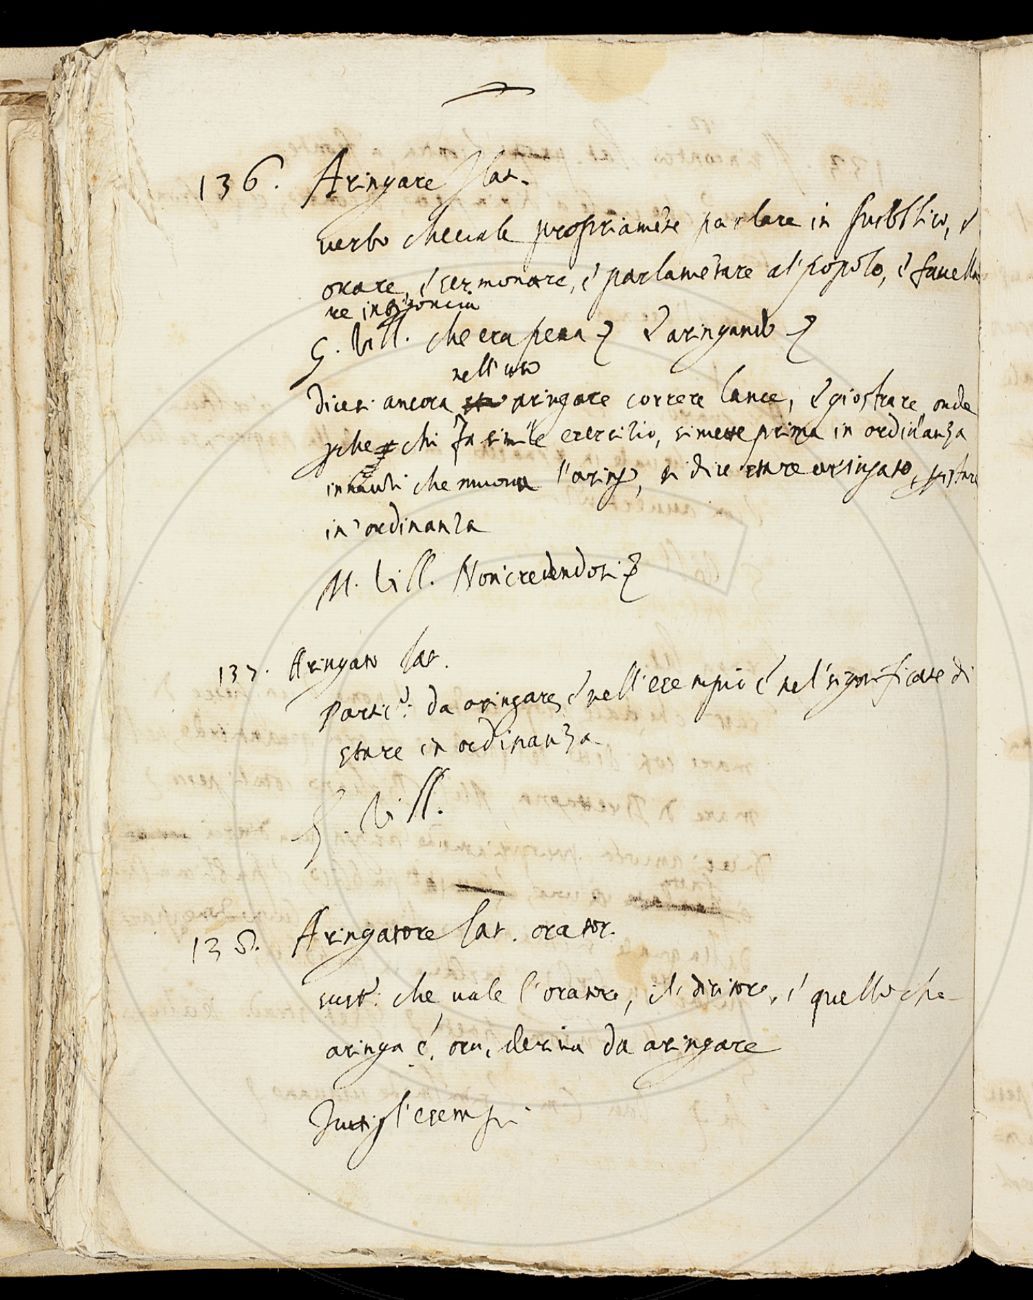 136. Aringare lat.
verbo che vale propriamẽte parlare in pubblico, é
orare, é sermonare, é parlamẽtare al popolo, é favella
re in
G. Vill. che era pena Et aringando
nell'uso
dicesi ancora aringare correre lance, e giostrare onde
chi fa simile esercizio, si mette prima in ordinanza
innanzi che muova l'aringo, si dice stare aringato,
in ordinanza
M. Vill. Non credendosi
137. Aringato lat.
Partic: da aringare, é nell'esempio é nel significato di
stare in ordinanza
G. Vill.
138. Aringatore lat. orator.
sust: che vale l'oratore, il dicitore, é quello che
aringa é, ora, deriva da aringare
Tutti gl'esempi